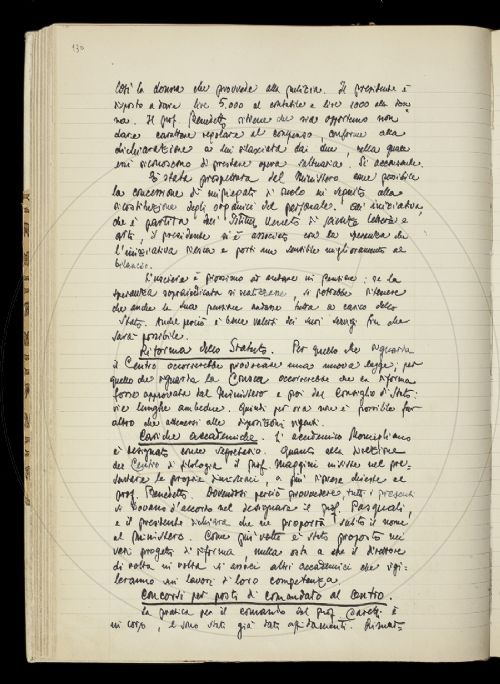 130
Così la donna che provvede alla pulizia. Il presidente è
disposto a dare lire 5.000 al contabile e lire 1000 alla don-
na. Il prof. Benedetti ritiene che sia opportuno non
dare carattere regolare al compenso, conforme alla
dichiarazione a lui rilasciata dai due nella quale
essi riconoscono di prestare opera saltuaria. Si acconsente.
È stata prospettata dal Ministero come possibile
la concessione di impiegati di ruolo in seguito alla
ricostituzione degli organici del personale. All'iniziativa,
che è partita dall'Istituto Veneto di scienze lettere e
arti, il presidente si è associato con la speranza che
l'iniziativa riesca e porti un sensibile miglioramento al
bilancio.
L'usciere è prossimo ad andare in pensione; se la
speranza sopraindicata si realizzasse, si potrebbe ottenere
che anche la sua pensione andasse tutta a carico dello
Stato. Anche perciò è bene valersi dei suoi servigi fin che
sarà possibile.
Riforma dello Statuto. Per quello che riguarda
il Centro occorrerebbe provocare una nuova legge; per
quello che riguarda la Crusca occorrerebbe che la riforma
fosse approvata dal Ministero e poi dal Consiglio di Stato:
vie lunghe ambedue. Quindi per ora non è possibile far
altro che attenersi alle disposizioni vigenti.
Cariche accademiche. L'accademico Momigliano
è designato come segretario. Quanto alla direzione
del Centro di filologia, il prof. Maggini insiste nel pre-
sentare le proprie dimissioni, e più riprese
prof. Benedetti. Dovendosi perciò provvedere, tutti i presenti
si trovano d'accordo nel designare il prof. Pasquali,
e il presidente dichiara che ne proporrà subito il nome
al Ministero. Come più volte è stato proposto nei
vari progetti di riforma, nulla osta a che il direttore
di volta in volta si associ altri accademici che vigi-
leranno sui lavori di loro competenza.
Concorsi per posti di comandato al Centro.
La pratica per il comando del prof. è
in corso, e sono stati già dati affidamenti.